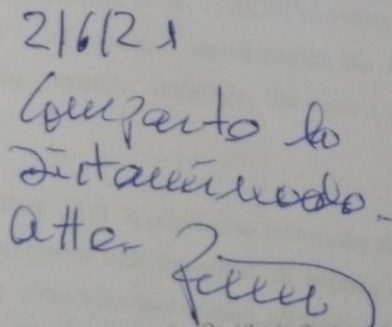 2/6/21
Comparto lo
dictaminado.
Atte.